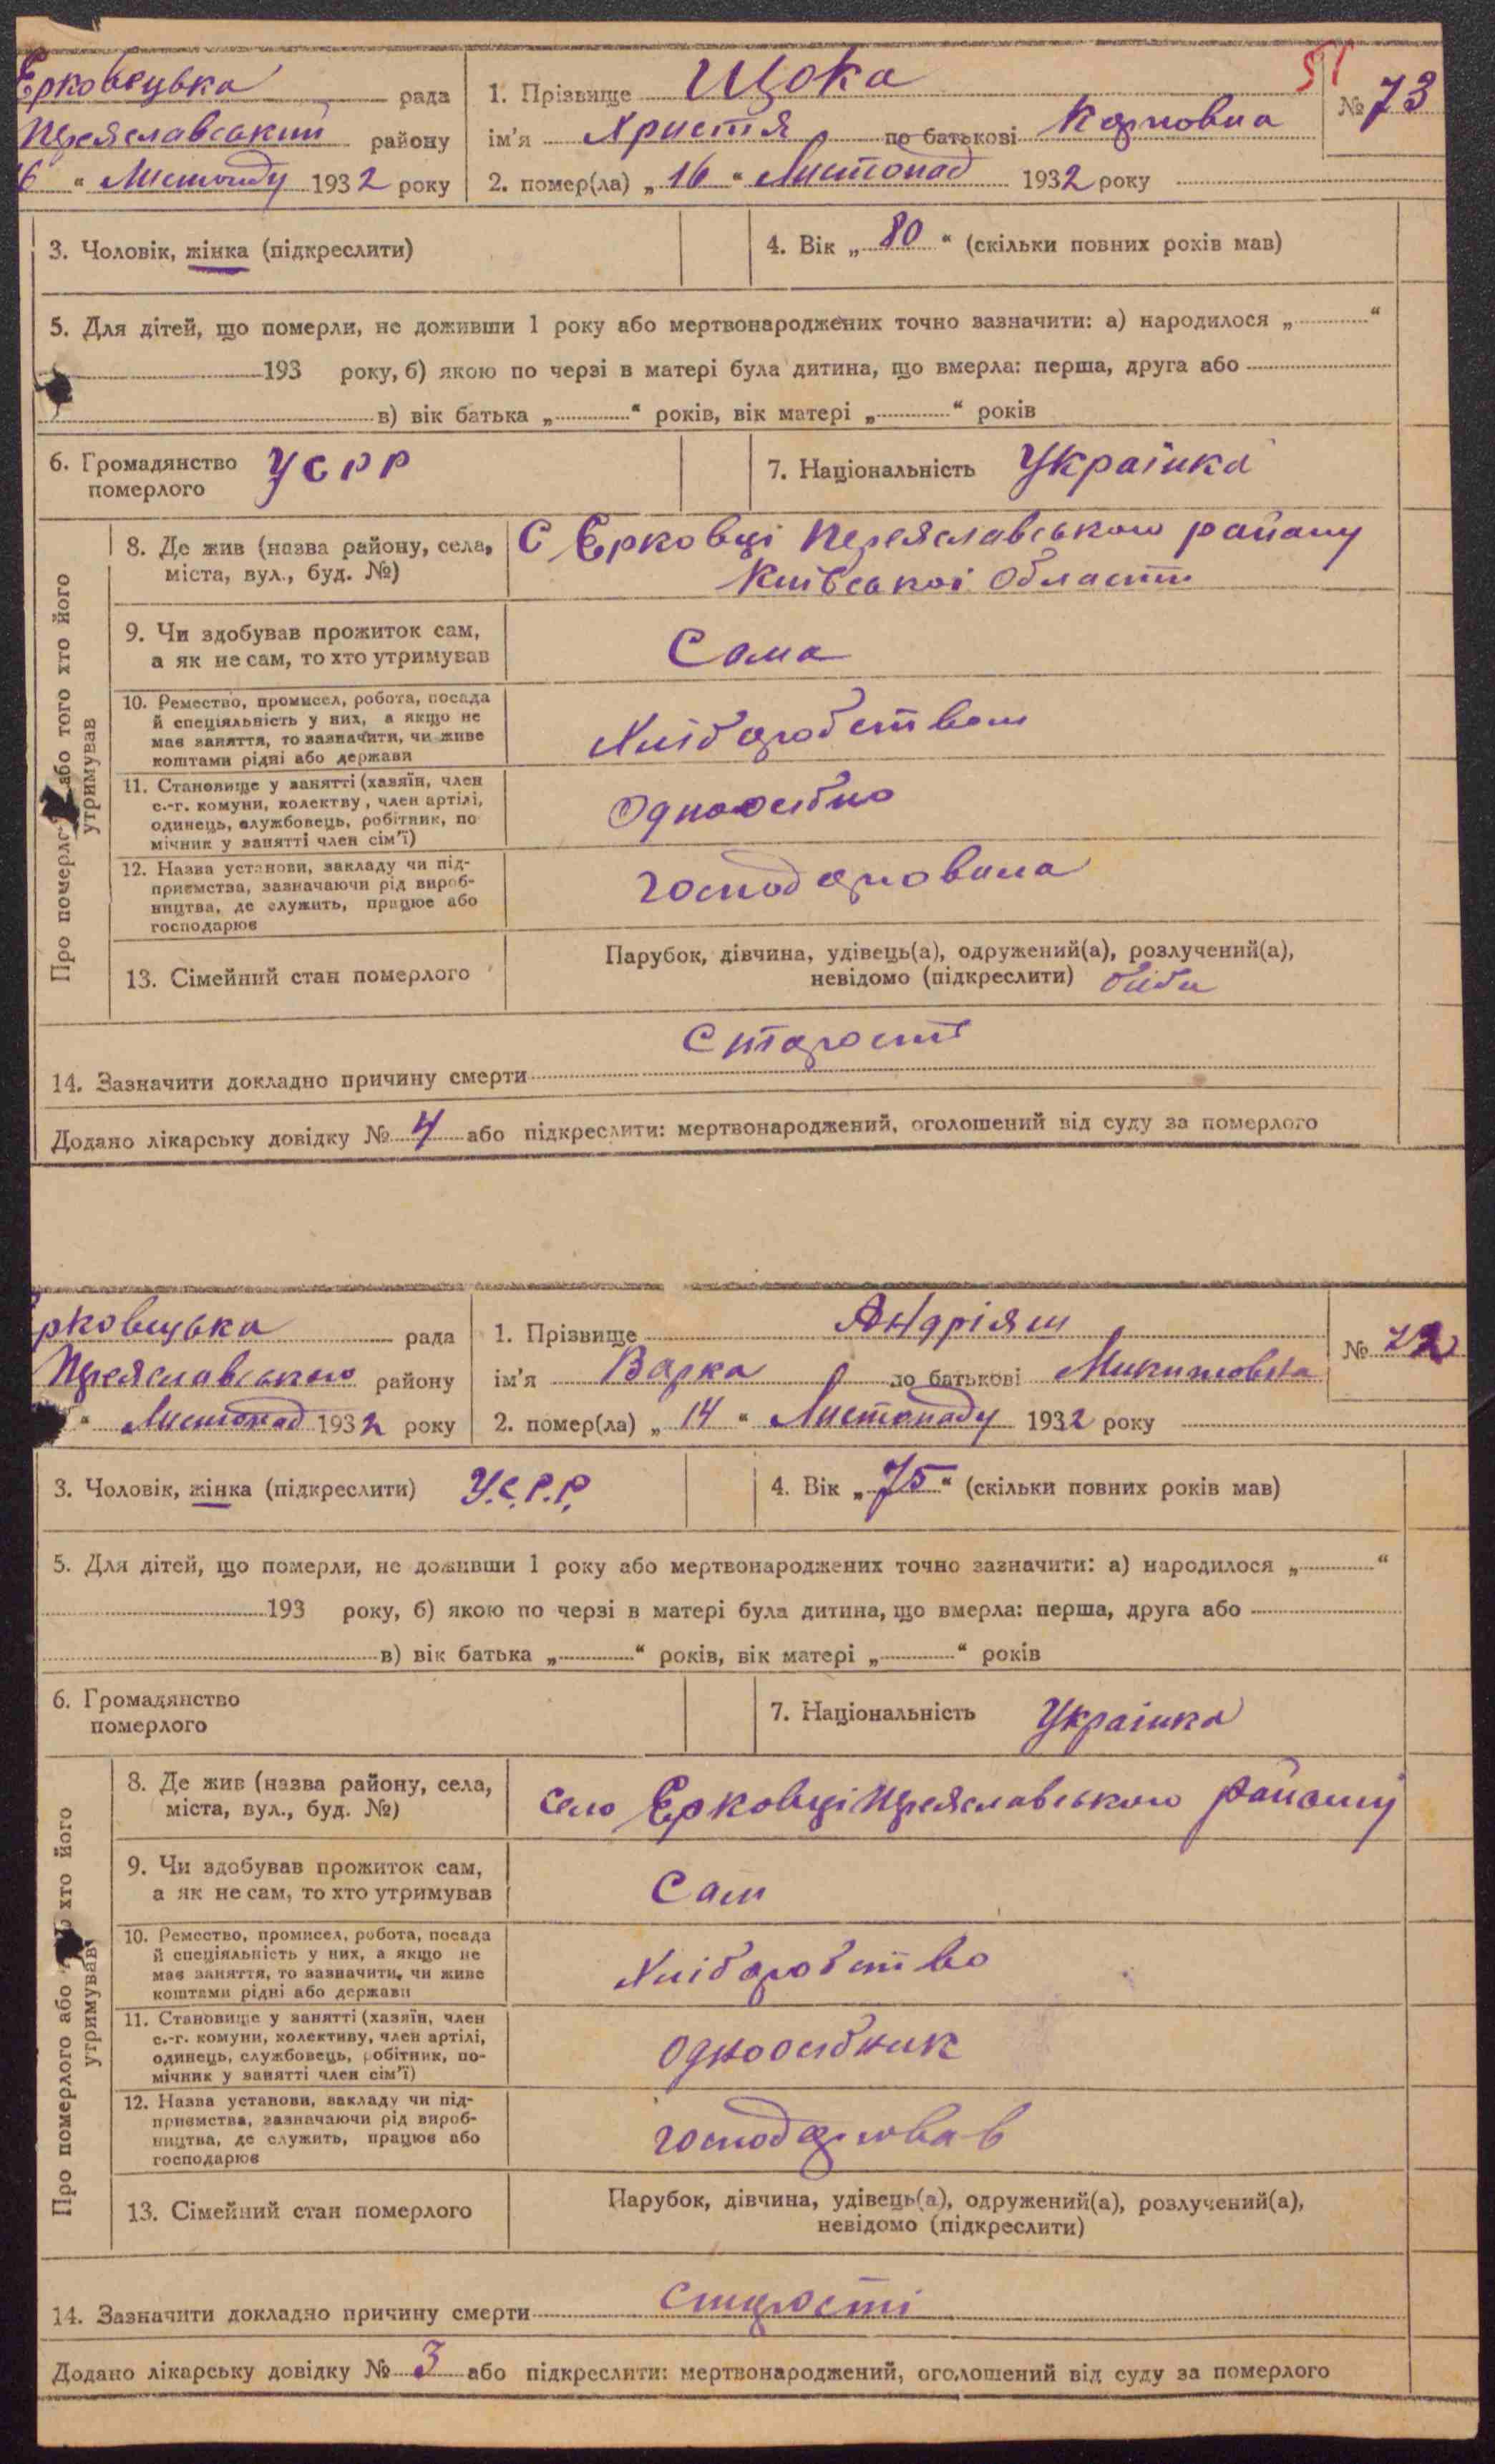 Єрковецька рада
Переяславський району
6 " Листопаду 1932 року
1. Прізвище Щока
51
№ 73
ім'я Христя по батькові Карповна
2. помер(ла) „ 16 " Листопад 1932 року
3. Чоловік, жінка (підкреслити)
4. Вік „ 80 " (скільки повних років мав)
5. Для дітей, що померли, не доживши 1 року або мертвонароджених точно зазначити: а) народилося „ "
193 року, б) якою по черзі в матері була дитина, що вмерла: перша, друга або
в) вік батька „ " років, вік матері „ " років
6. Громадянство
померлого
УСРР
7. Національність Українка
Про померло або того хто його
утримував
8. Де жив (назва району, села,
міста, вул., буд. №)
С Єрковці Переяславського району
Київської Области
9. Чи здобував прожиток сам,
а як не сам, то хто утримував
Сама
10. Ремество, промисел, робота, посада
й спеціяльність у них, а якщо не
має заняття, то зазначити, чи живе
коштами рідні або держави
Хліборобством
11. Становище у занятті (хазяїн, член
с.-г. комуни, колектву, член артілі,
одинець, службовець, робітник, по
мічник у занятті член сім'ї)
Одноосібно
12. Назва установи, закладу чи під-
приємства, зазначаючи рід вироб-
ництва, де служить, працює або
господарює
господарювала
13. Сімейний стан померлого
Парубок, дівчина, удівець(а), одружений(а), розлучений(а),
невідомо (підкреслити)
14. Зазначити докладно причину смерти Старости
Додано лікарську довідку № 4 або підкреслити: мертвонароджений, оголошений від суду за померлого
рковецька рада
Переяславського району
" Листопад 1932 року
1. Прізвище Андріяш
№ 72
ім'я Варка по батькові Микитовна
2. помер(ла) „ 14 " Листопаду 1932 року
3. Чоловік, жінка (підкреслити) У.С.Р.Р.
4. Вік „ 75 " (скільки повних років мав)
5. Для дітей, що померли, не доживши 1 року або мертвонароджених точно зазначити: а) народилося „ "
193 року, б) якою по черзі в матері була дитина, що вмерла: перша, друга або
в) вік батька „ " років, вік матері „ " років
6. Громадянство
померлого
7. Національність Українка
Про померлого або хто його
утримував
8. Де жив (назва району, села,
міста, вул., буд. №)
село Єрковці Переяславського району
9. Чи здобував прожиток сам,
а як не сам, то хто утримував
Сам
10. Ремество, промисел, робота, посада
й спеціяльність у них, а якщо не
має заняття, то зазначити, чи живе
коштами рідні або держави
Хліборобство
11. Становище у занятті (хазяїн, член
с.-г. комуни, колективу, член артілі,
одинець, службовець, робітник, по-
мічник у занятті член сім'ї)
одноосібник
12. Назва установи, закладу чи під-
приємства, зазначаючи рід вироб-
ництва, де служить, працює або
господарює
господарював
13. Сімейний стан померлого
Парубок, дівчина, удівець(а), одружений(а), розлучений(а),
невідомо (підкреслити)
14. Зазначити докладно причину смерти старости
Додано лікарську довідку № 3 або підкреслити: мертвонароджений, оголошений від суду за померлого